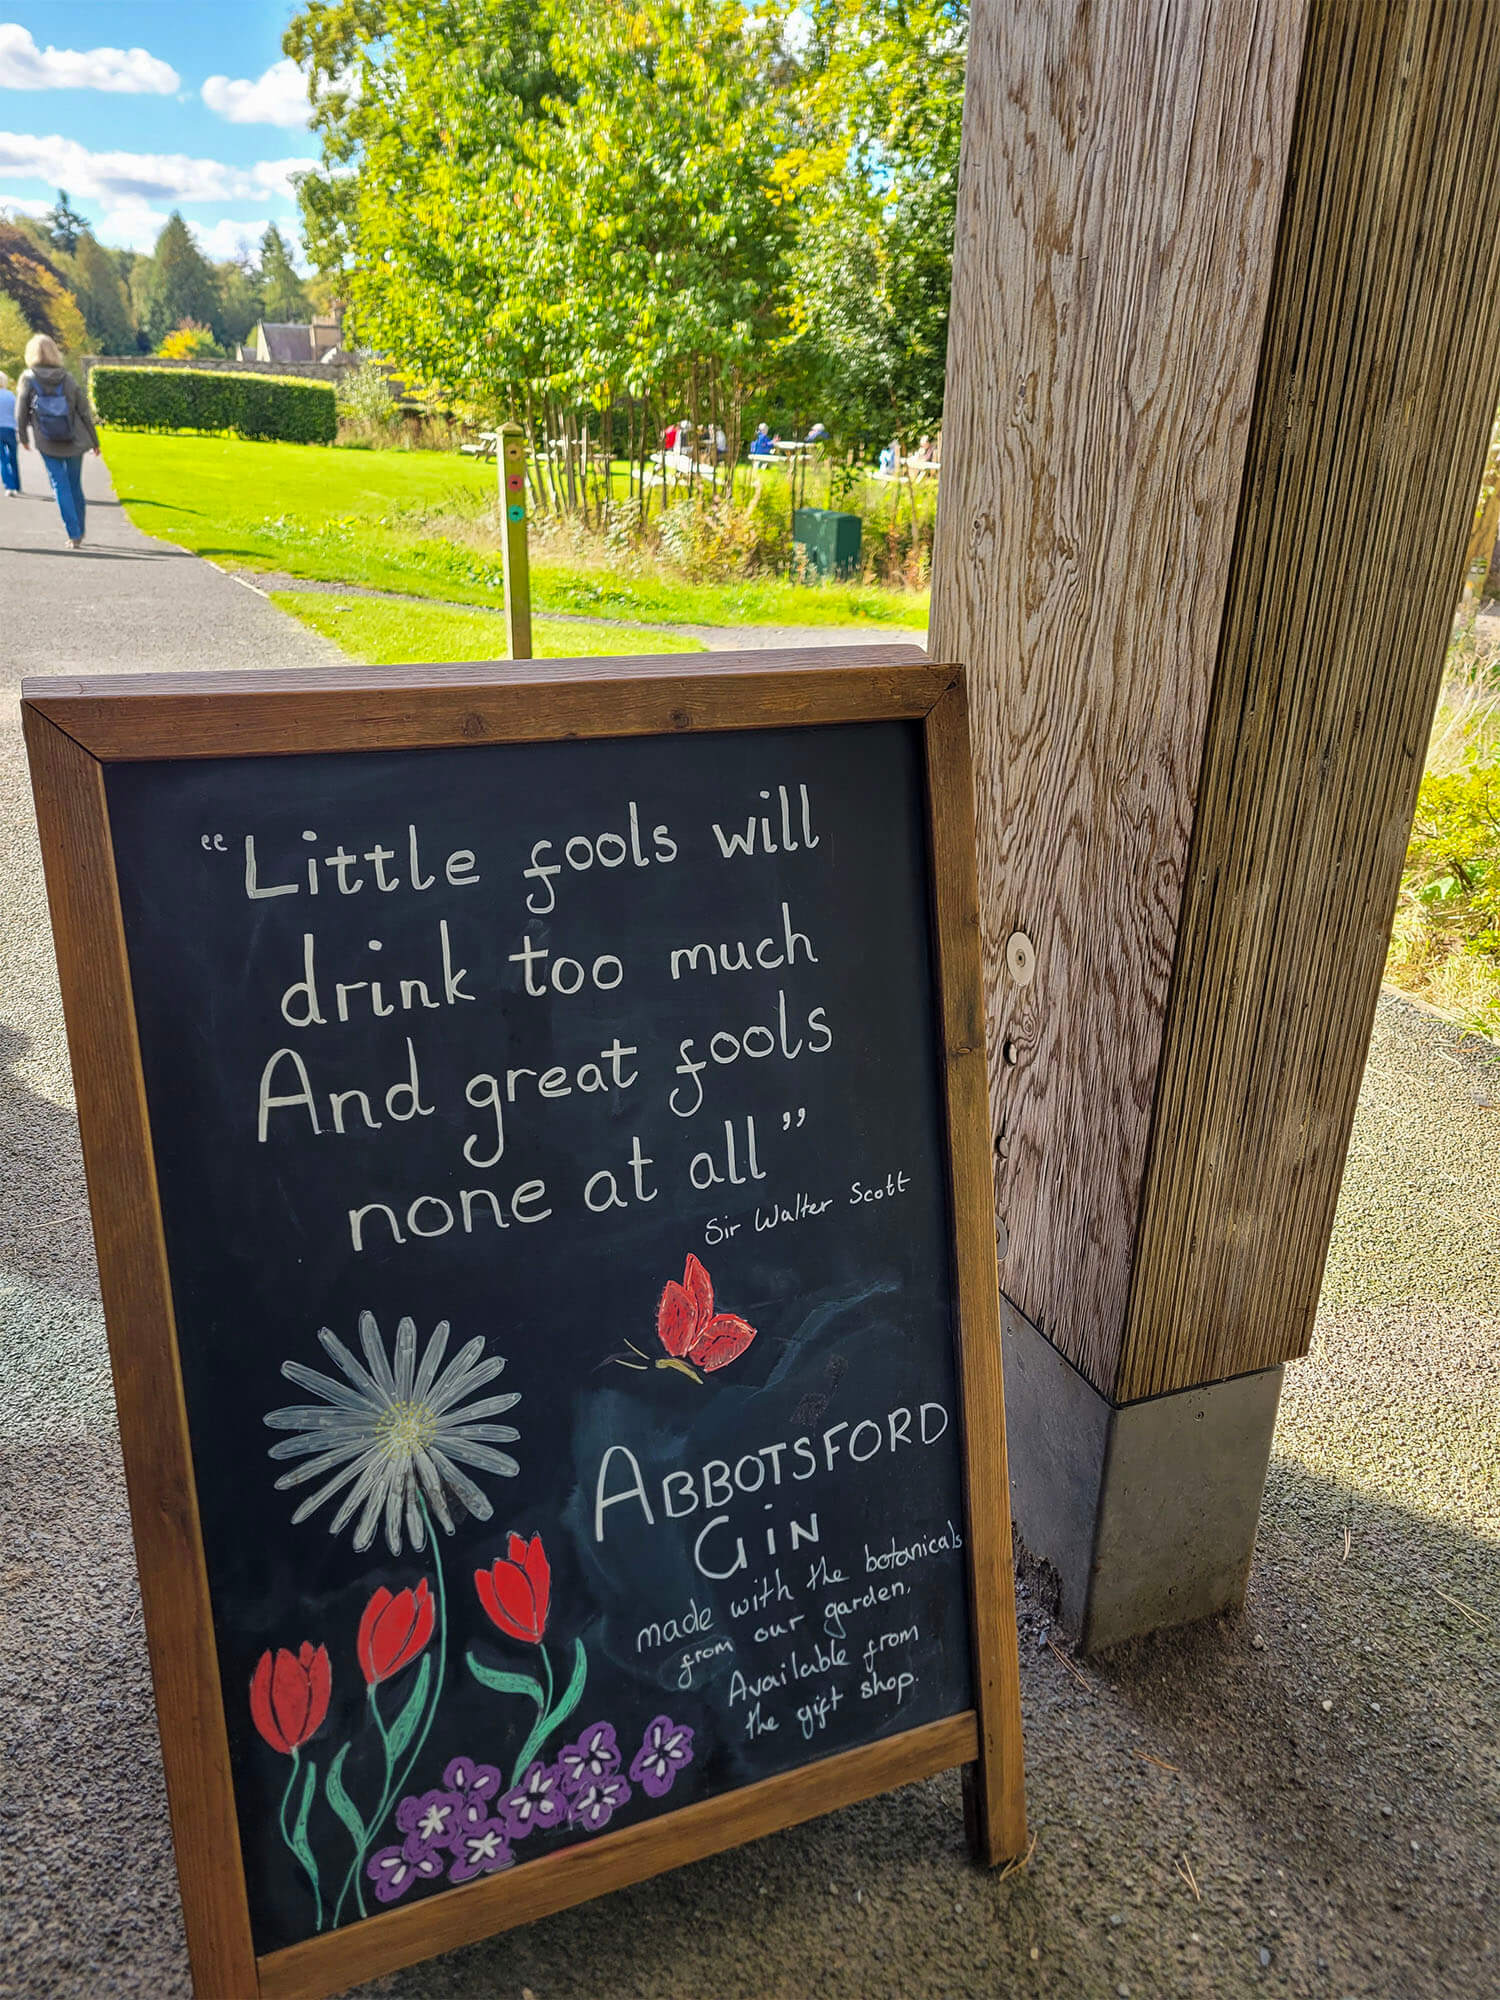 “Little fools will
drink too much
And great fools
none at all”
Sir Walter Scott
ABBOTSFORD
GIN
made with the botanicals
from our garden.
Available from
the gift shop.